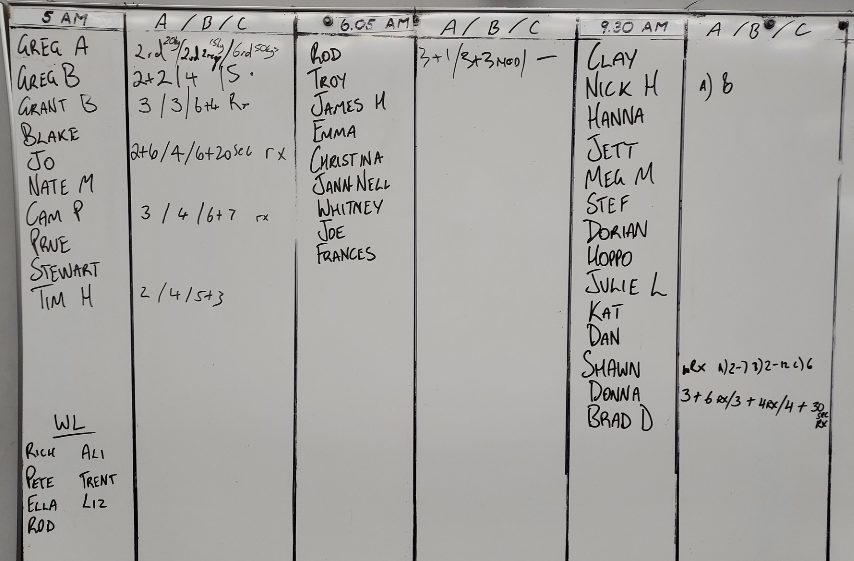 5 AM
A / B / C
GREG A 2rd 20kg / 2rd 2reg 15kg / 6rd 50kgs
GREG B 2+2 / 4 / 5
GRANT B 3 / 3 / 6+4 Rx
BLAKE
JO 2+6 / 4 / 6+20sec rx
NATE M
CAM P 3 / 4 / 6+7 rx
PRUE
STEWART
TIM H 2 / 4 / 5+3
WL
RICH ALI
PETE TRENT
ELLA LIZ
ROD
6.05 AM
A / B / C
ROD 3+1 / 3+3 MOD / —
TROY
JAMES H
EMMA
CHRISTINA
JANN-NELL
WHITNEY
JOE
FRANCES
9.30 AM
A / B / C
CLAY
NICK H A) 8
HANNA
JETT
MEG M
STEF
DORIAN
HOPPO
JULIE L
KAT
DAN
SHAWN Rx A) 2-7 B) 2-12 C) 6
DONNA 3+6 RX / 3 + 4RX / 4 + 30 SEC RX
BRAD D